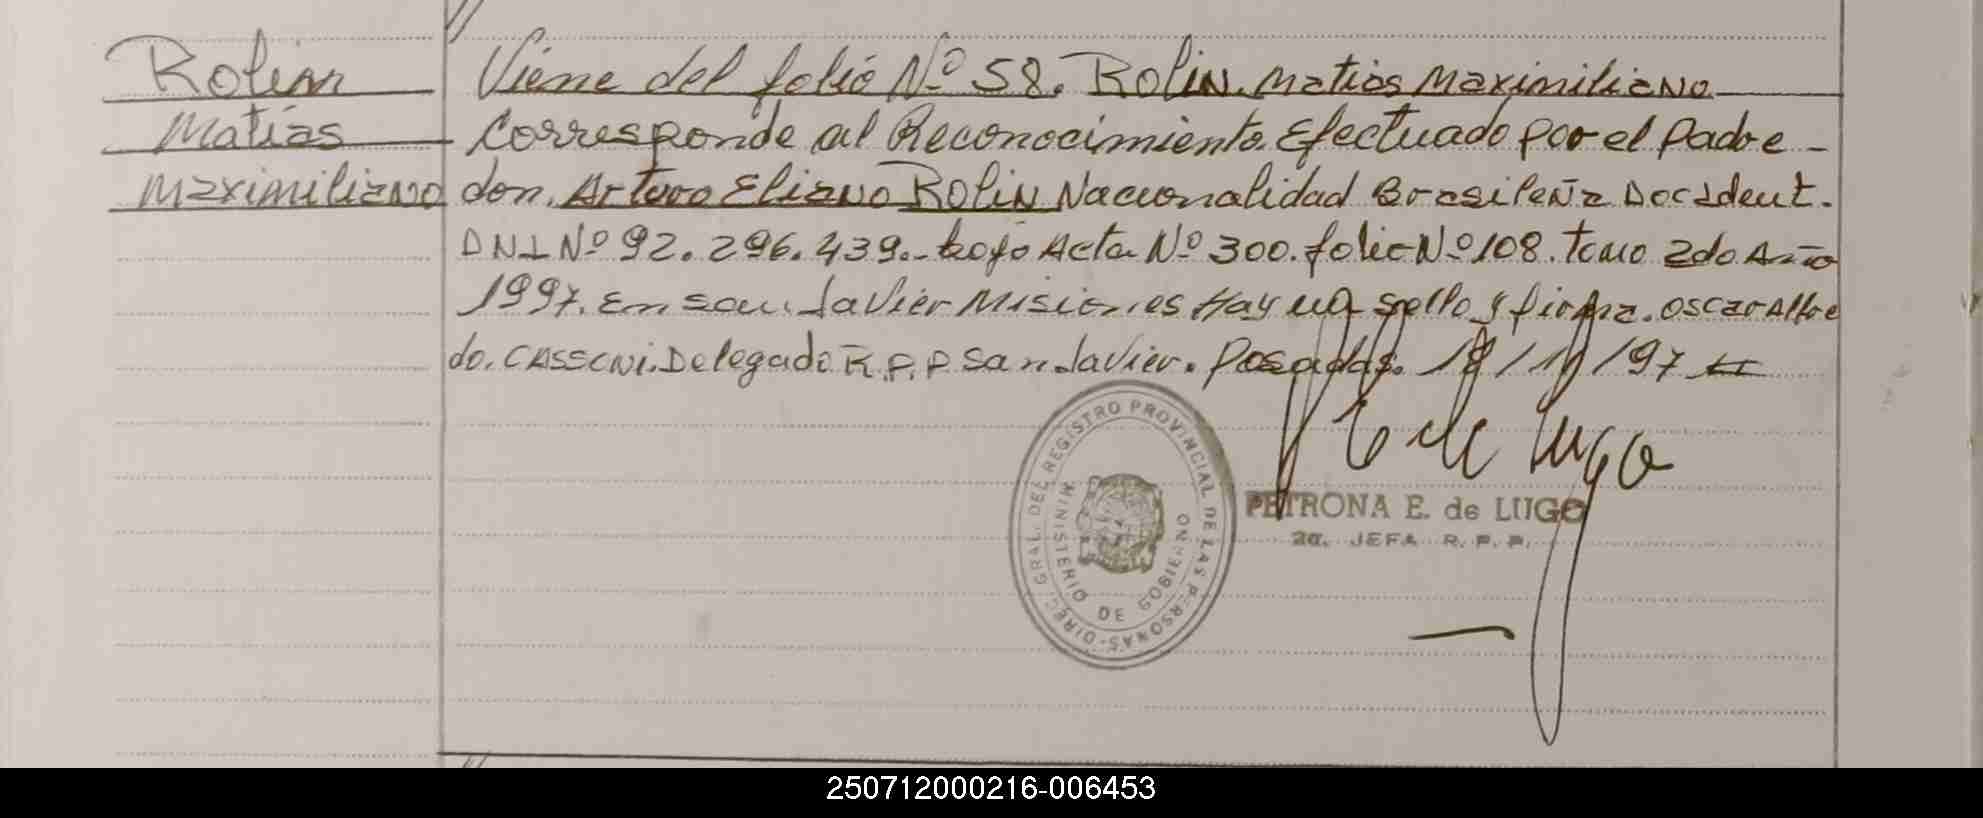 Rolin
Matías
Maximiliano
Viene del folio Nº 58. Rolin. Matias Maximiliano
Corresponde al Reconocimiento Efectuado por el Padre -
don. Arturo Eliano Rolin Nacionalidad Brasileña Doc Ident.
DNI Nº 92.296.439.- bajo Acta Nº 300. folio Nº 108. tomo 2do Año
1997. En San Javier Misiones Hay un sello y firma. Oscar Alfre
do. CASSONi. Delegado R.P.P San Javier. Posadas. 18/11/97
E de Lugo
DIREC. GRAL. DEL REGISTRO PROVINCIAL DE LAS PERSONAS-
MINISTERIO DE GOBIERNO
PETRONA E. de LUGO
2a. JEFA R.P.P.
250712000216-006453